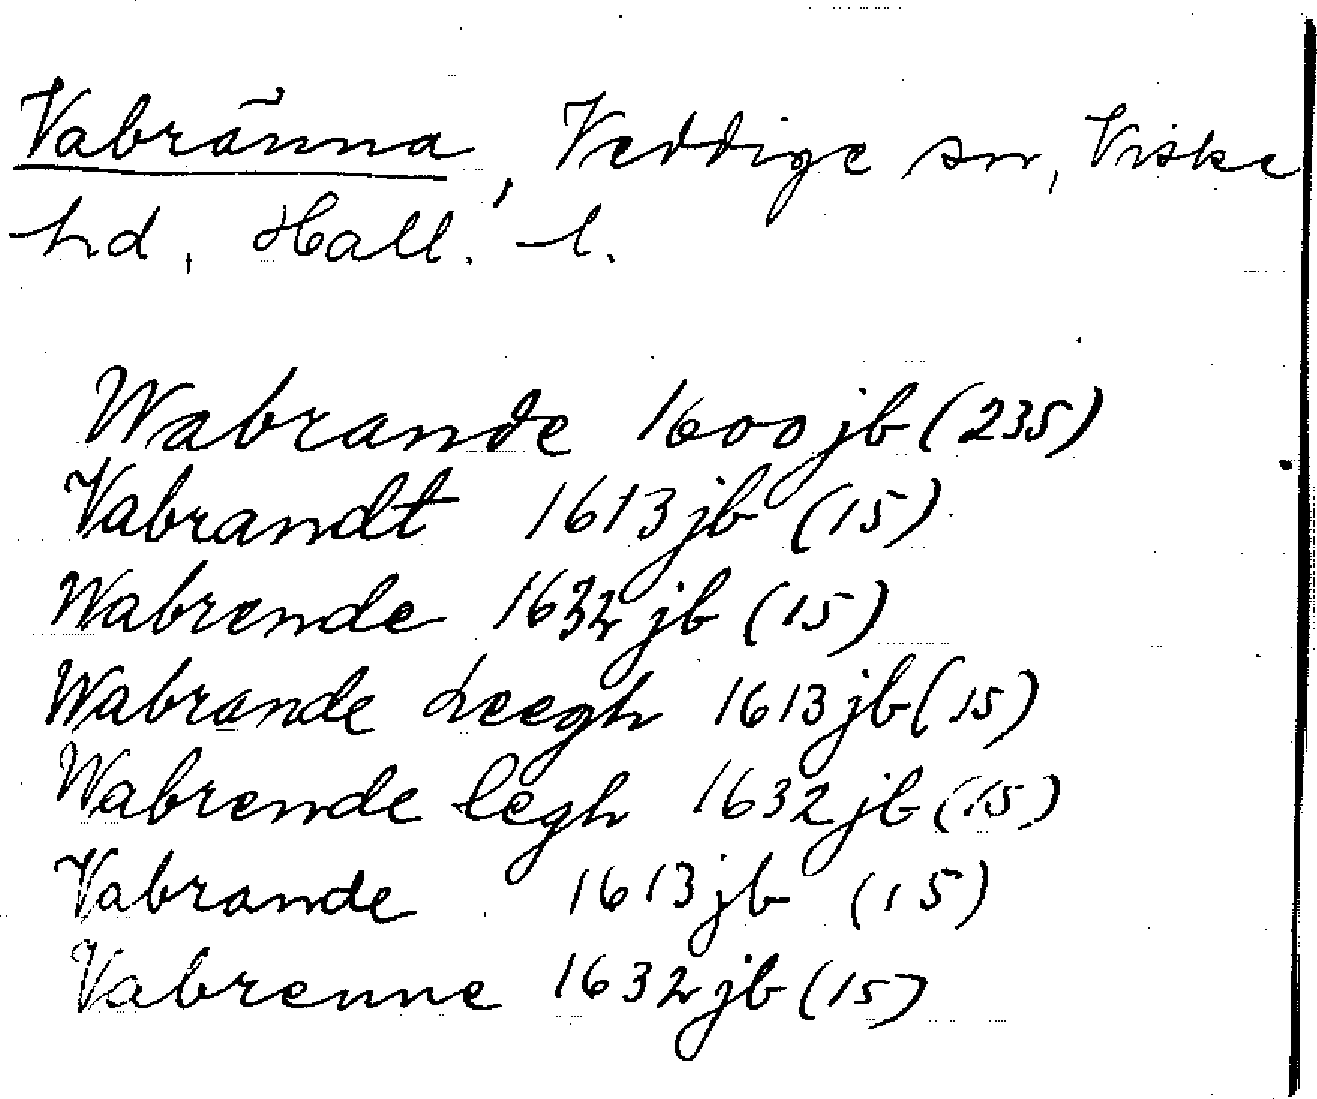 Vabränna, Veddige sn, Viske
hd, Hall. l.
Wabrande 1600 jb (235)
Vabrandt 1613 jb (15)
Wabrende 1632 jb (15)
Wabrande Leegh 1613 jb (15)
Wabrende legh 1632 jb (15)
Vabrande 1613 jb (15)
Vabrenne 1632 jb (15)